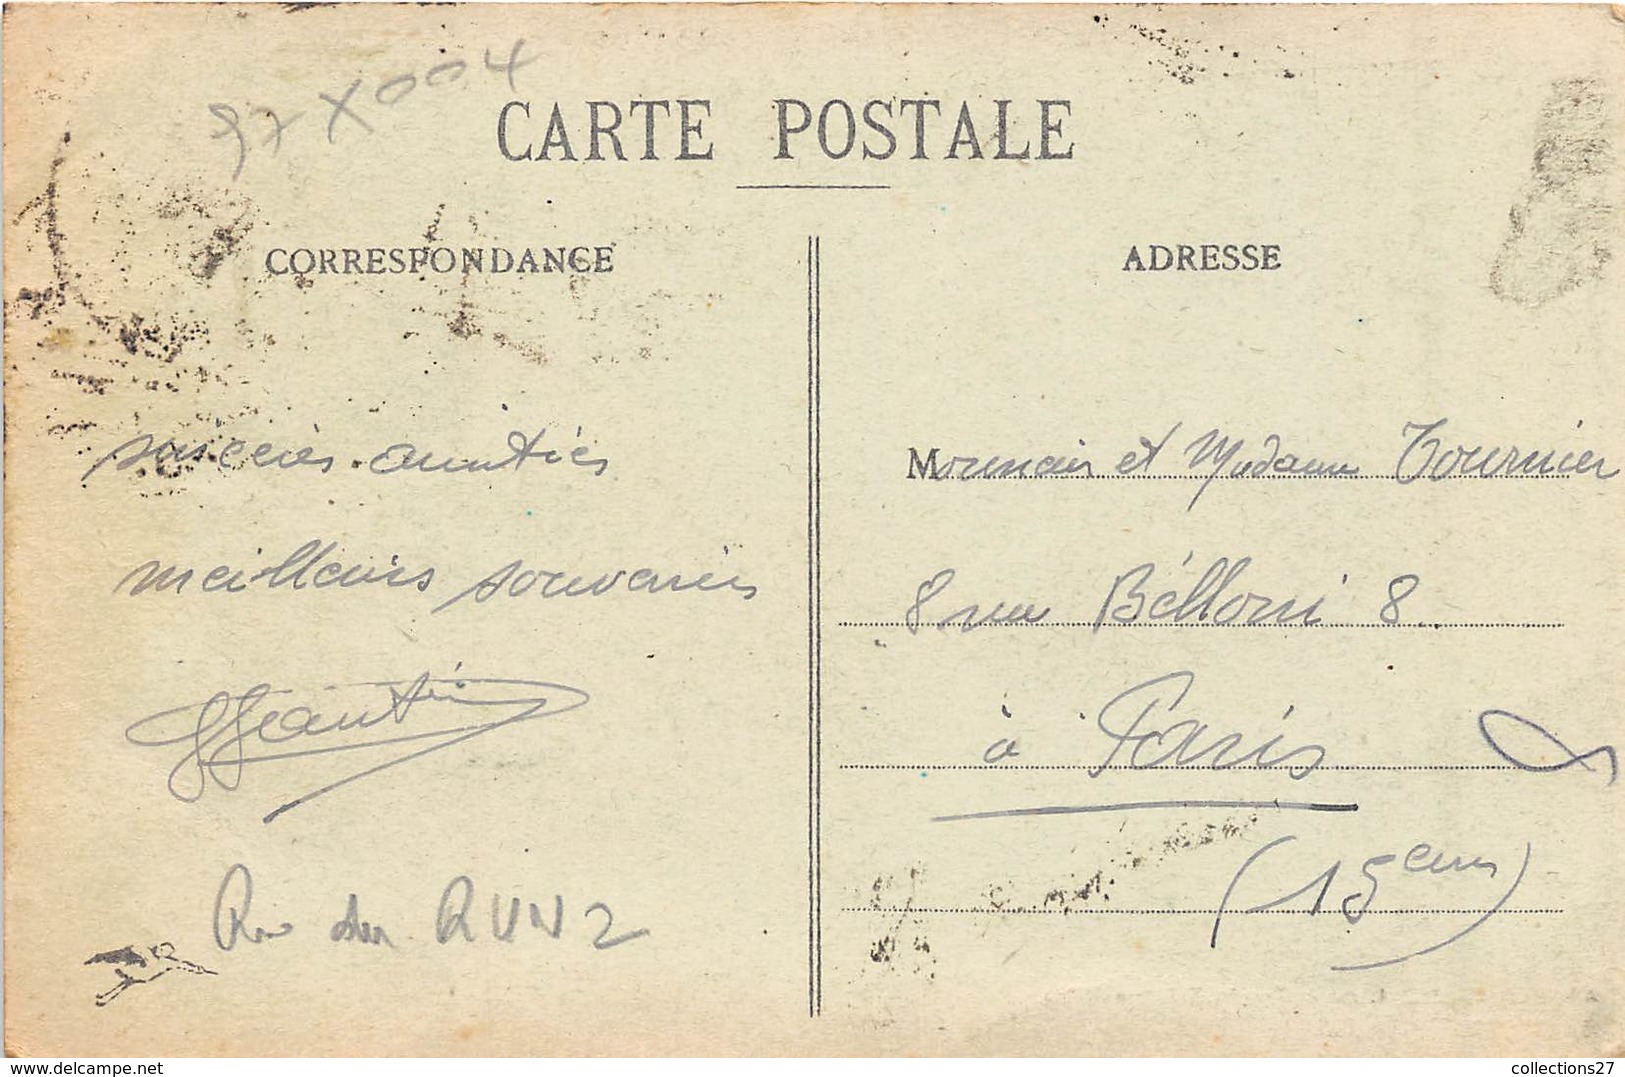 97X004
CARTE POSTALE
CORRESPONDANCE
sincères amitiés
meilleurs souvenirs
ADRESSE
Monsieur et Madame Tournier
8 rue Bélloni 8.
à Paris
(15eme)
RUNZ
www.delcampe.net
collections27